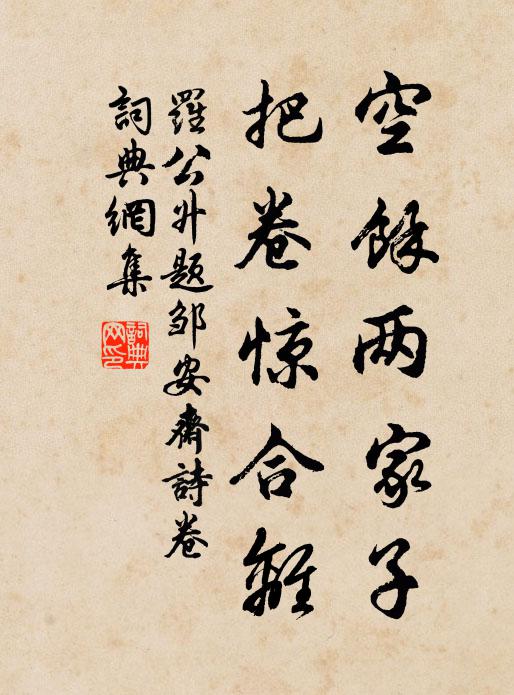 空餘两家子
把卷惊合離
羅公升题邹安齋詩卷
詞典網集
詞典
网印